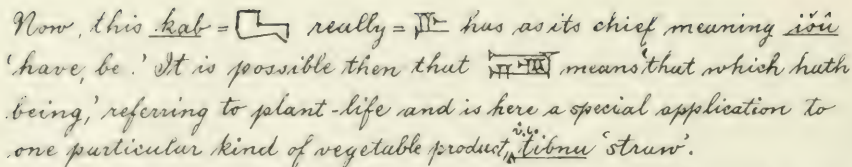 Now, this kab = really = has as its chief meaning išû
'have, be.' It is possible then that means 'that which hath
being,' referring to plant-life and is here a special application to
one particular kind of vegetable product, v.i.o. tibnu 'straw'.